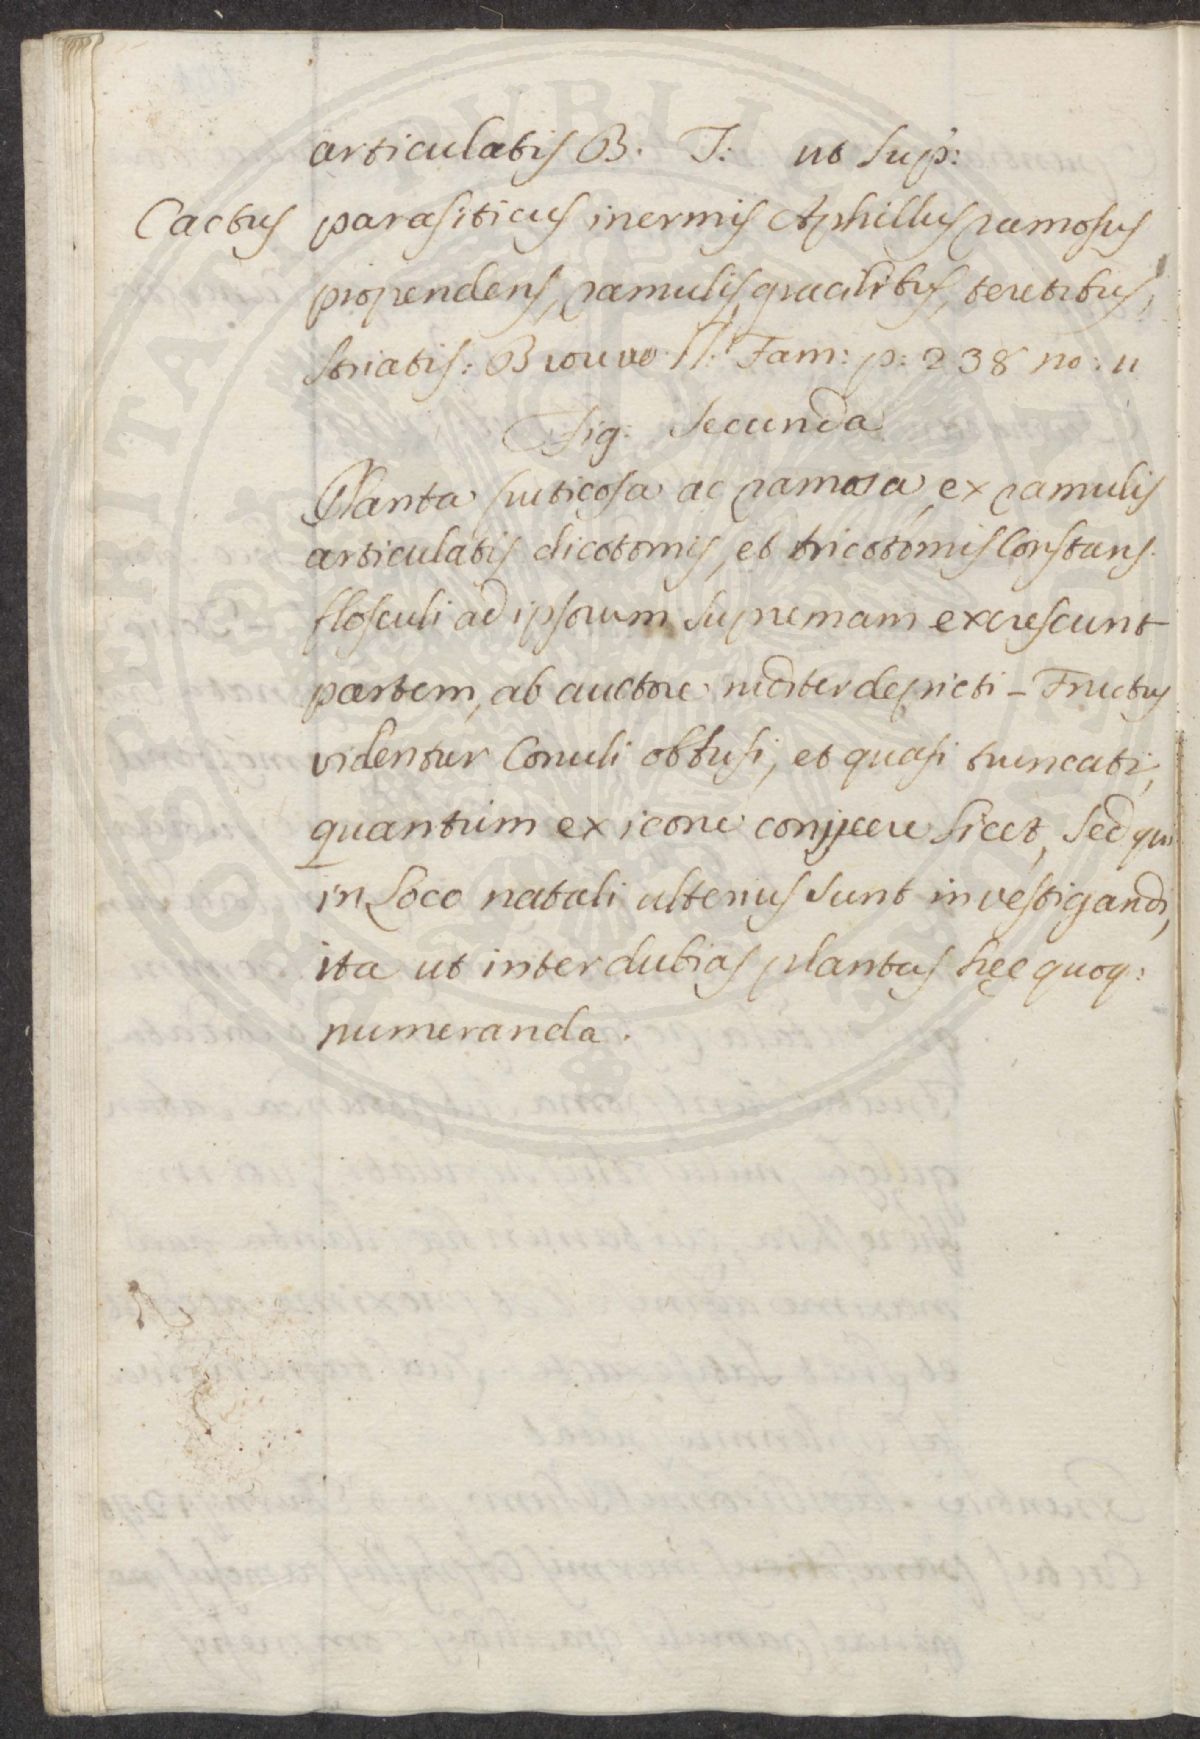 articulatis B. T: ut sup:
Cactus parasiticus inermis Aphillus ramosus
propendens, ramulis gracilibus, teretibus,
striatis: Brouvo Fam: p: 238 no: 11
Fig: Secunda
Planta fruticosa ac ramosa, ex ramulis
articulatis dicotomis, et tricotomis Constans.
flosculi ad ipsorum supremam excrescunt
partem, ab auctore ruditer depicti – Fructus
videntur Conuli obtusi, et quasi truncati,
quantum ex icone conjicere licet, sed qui
in Loco natali ulterius sunt investigandi,
ita ut inter dubias plantas hęc quoq:
numeranda.